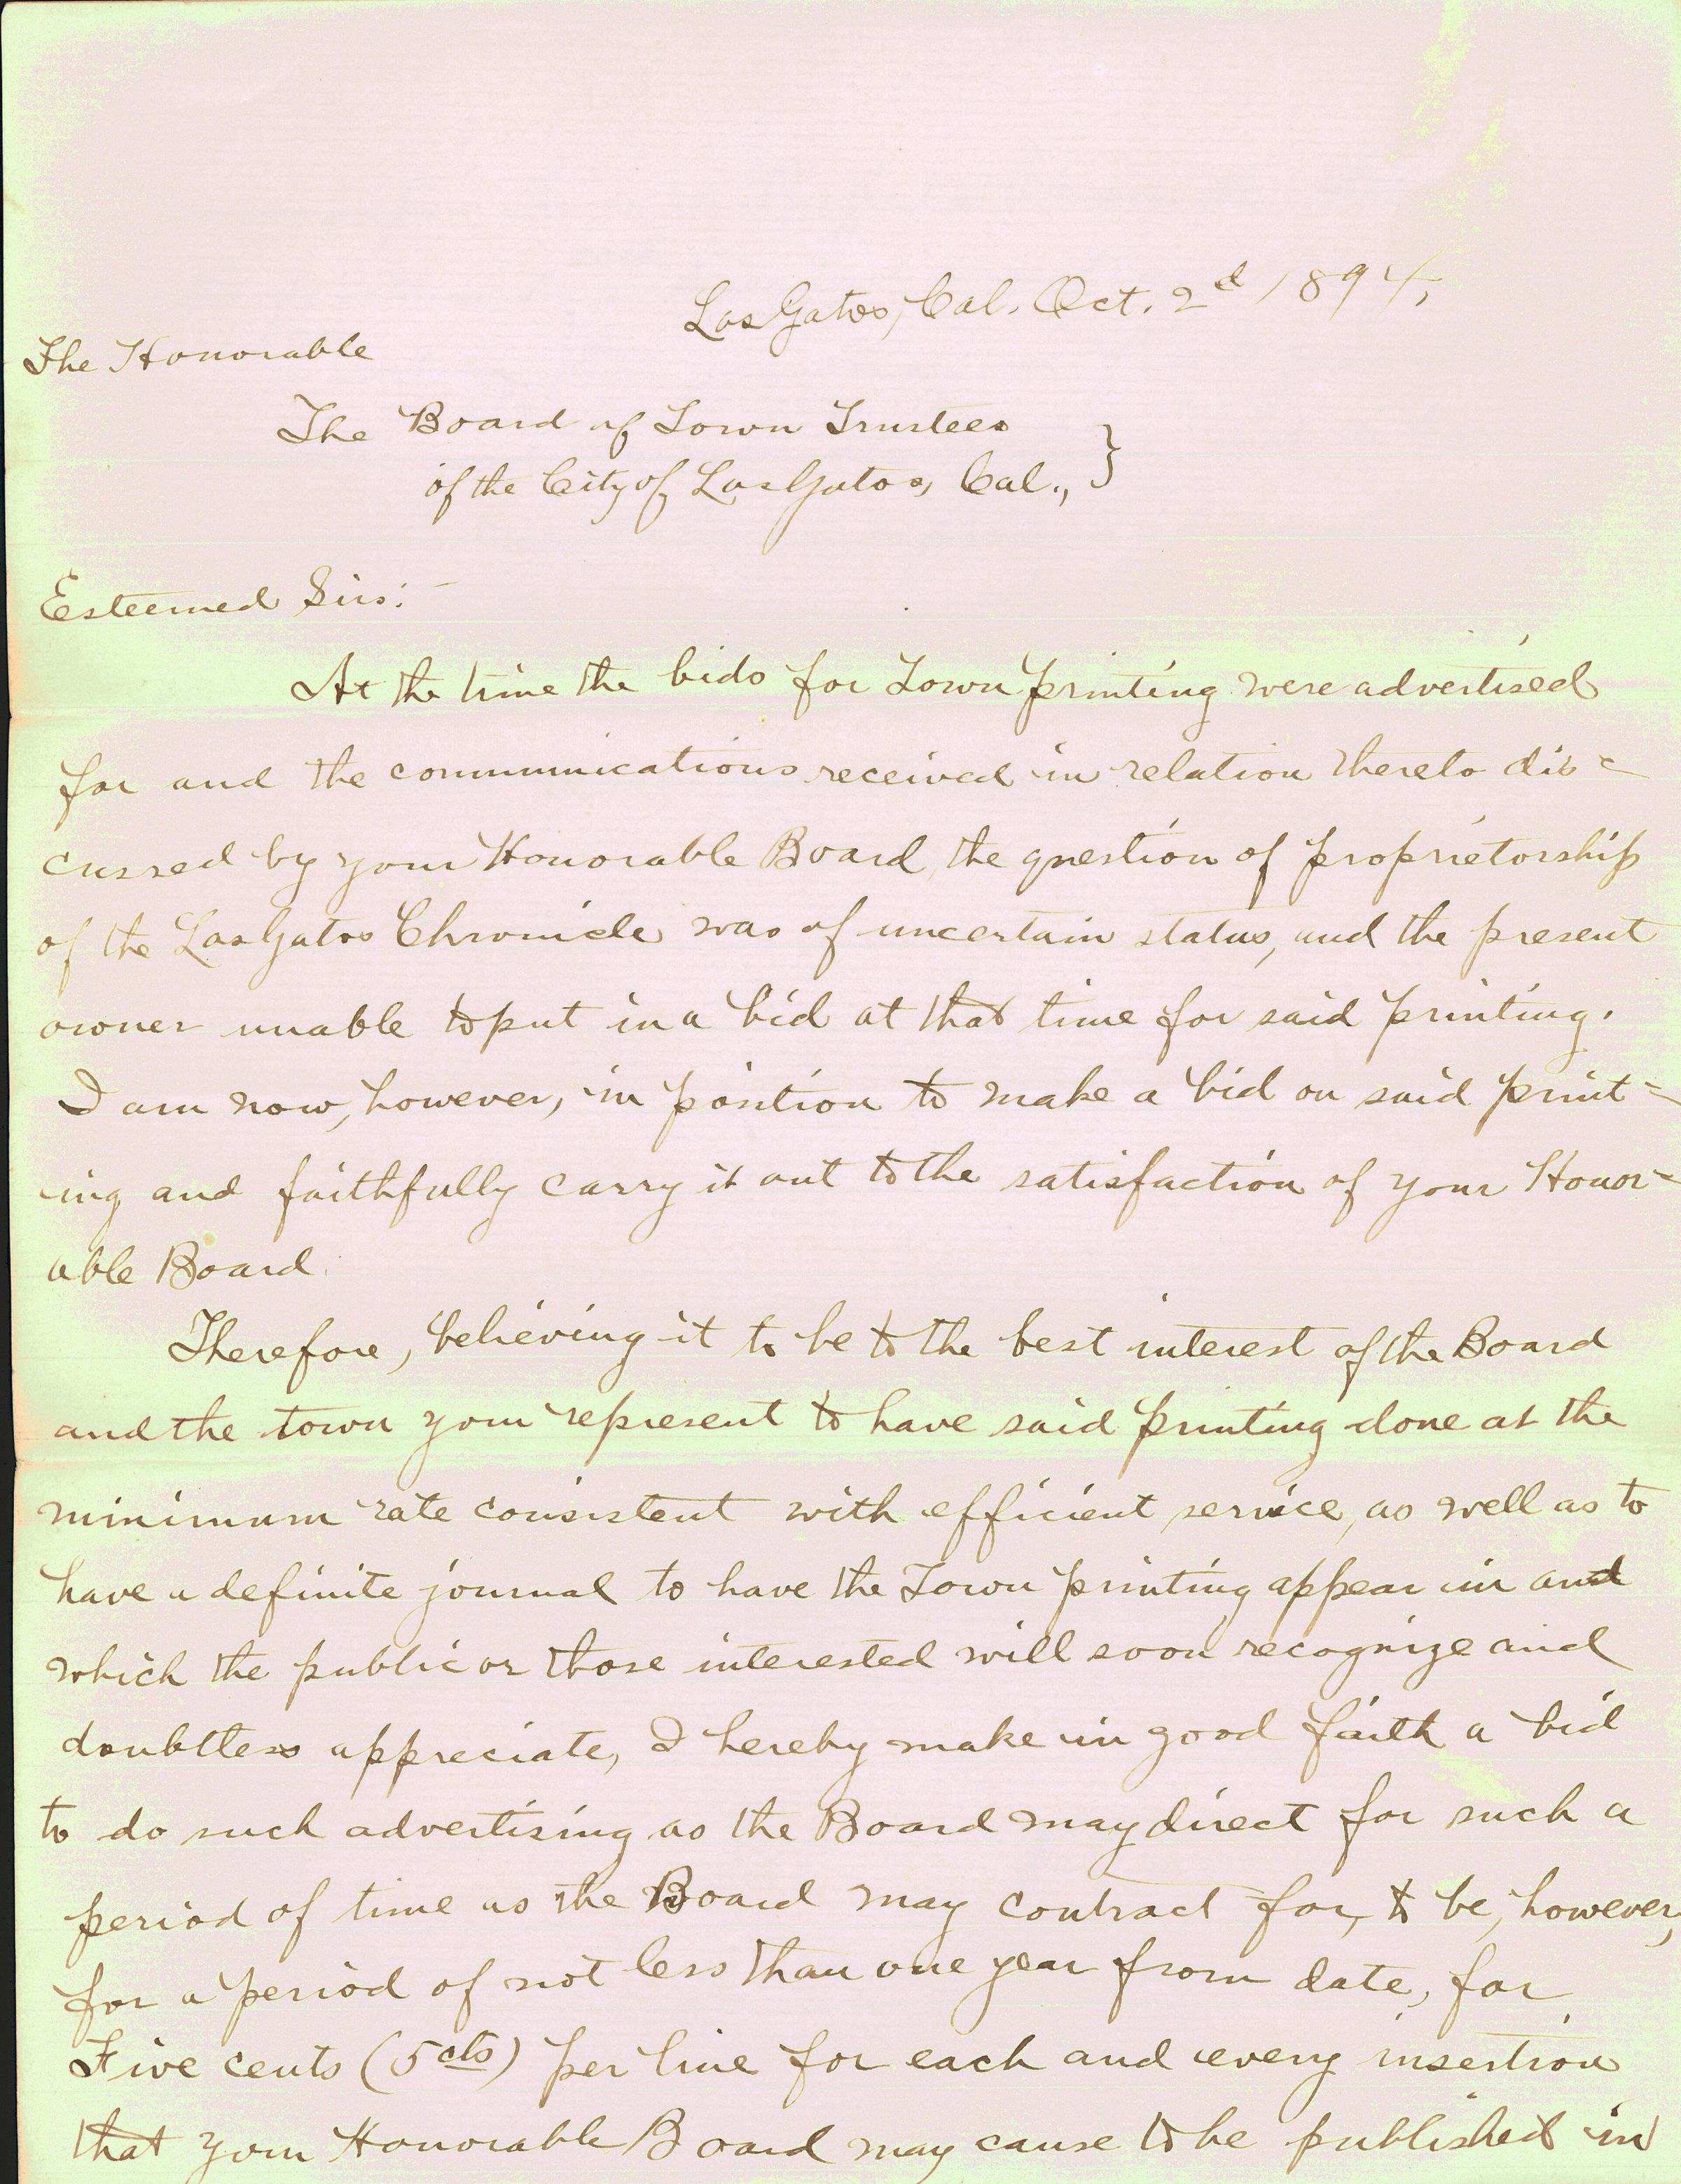 Los Gatos, Cal. Oct. 2d 1894,
The Honorable
The Board of Town Trustees
of the City of Los Gatos, Cal., }
Esteemed Sirs:-
At the time the bids for Town printing were advertised
for and the communications received in relation thereto dis=
cussed by your Honorable Board, the question of proprietorship
of the Los Gatos Chronicle was of uncertain status, and the present
owner unable to put in a bid at that time for said printing.
I am now, however, in position to make a bid on said print=
ing and faithfully carry it out to the satisfaction of your Honor=
able Board.
Therefore, believing it to be to the best interest of the Board
and the town you represent to have said printing done at the
minimum rate consistent with efficient service, as well as to
have a definite journal to have the Town printing appear in and
which the public or those interested will soon recognize and
doubtless appreciate, I hereby make in good faith a bid
to do such advertising as the Board may direct for such a
period of time as the Board may contract for, to be, however,
for a period of not less than one year from date, for
Five cents (5cts) per line for each and every insertion
that your Honorable Board may cause to be published in